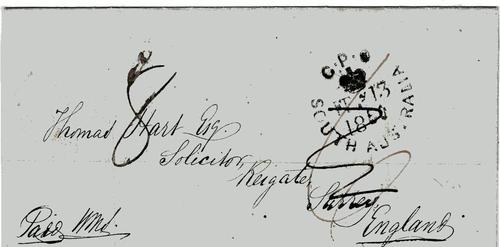 8
G.P.O
SOUTH AUSTRALIA
13
Thomas Hart Esq.
Solicitor
Reigate
Surrey
England
Paid